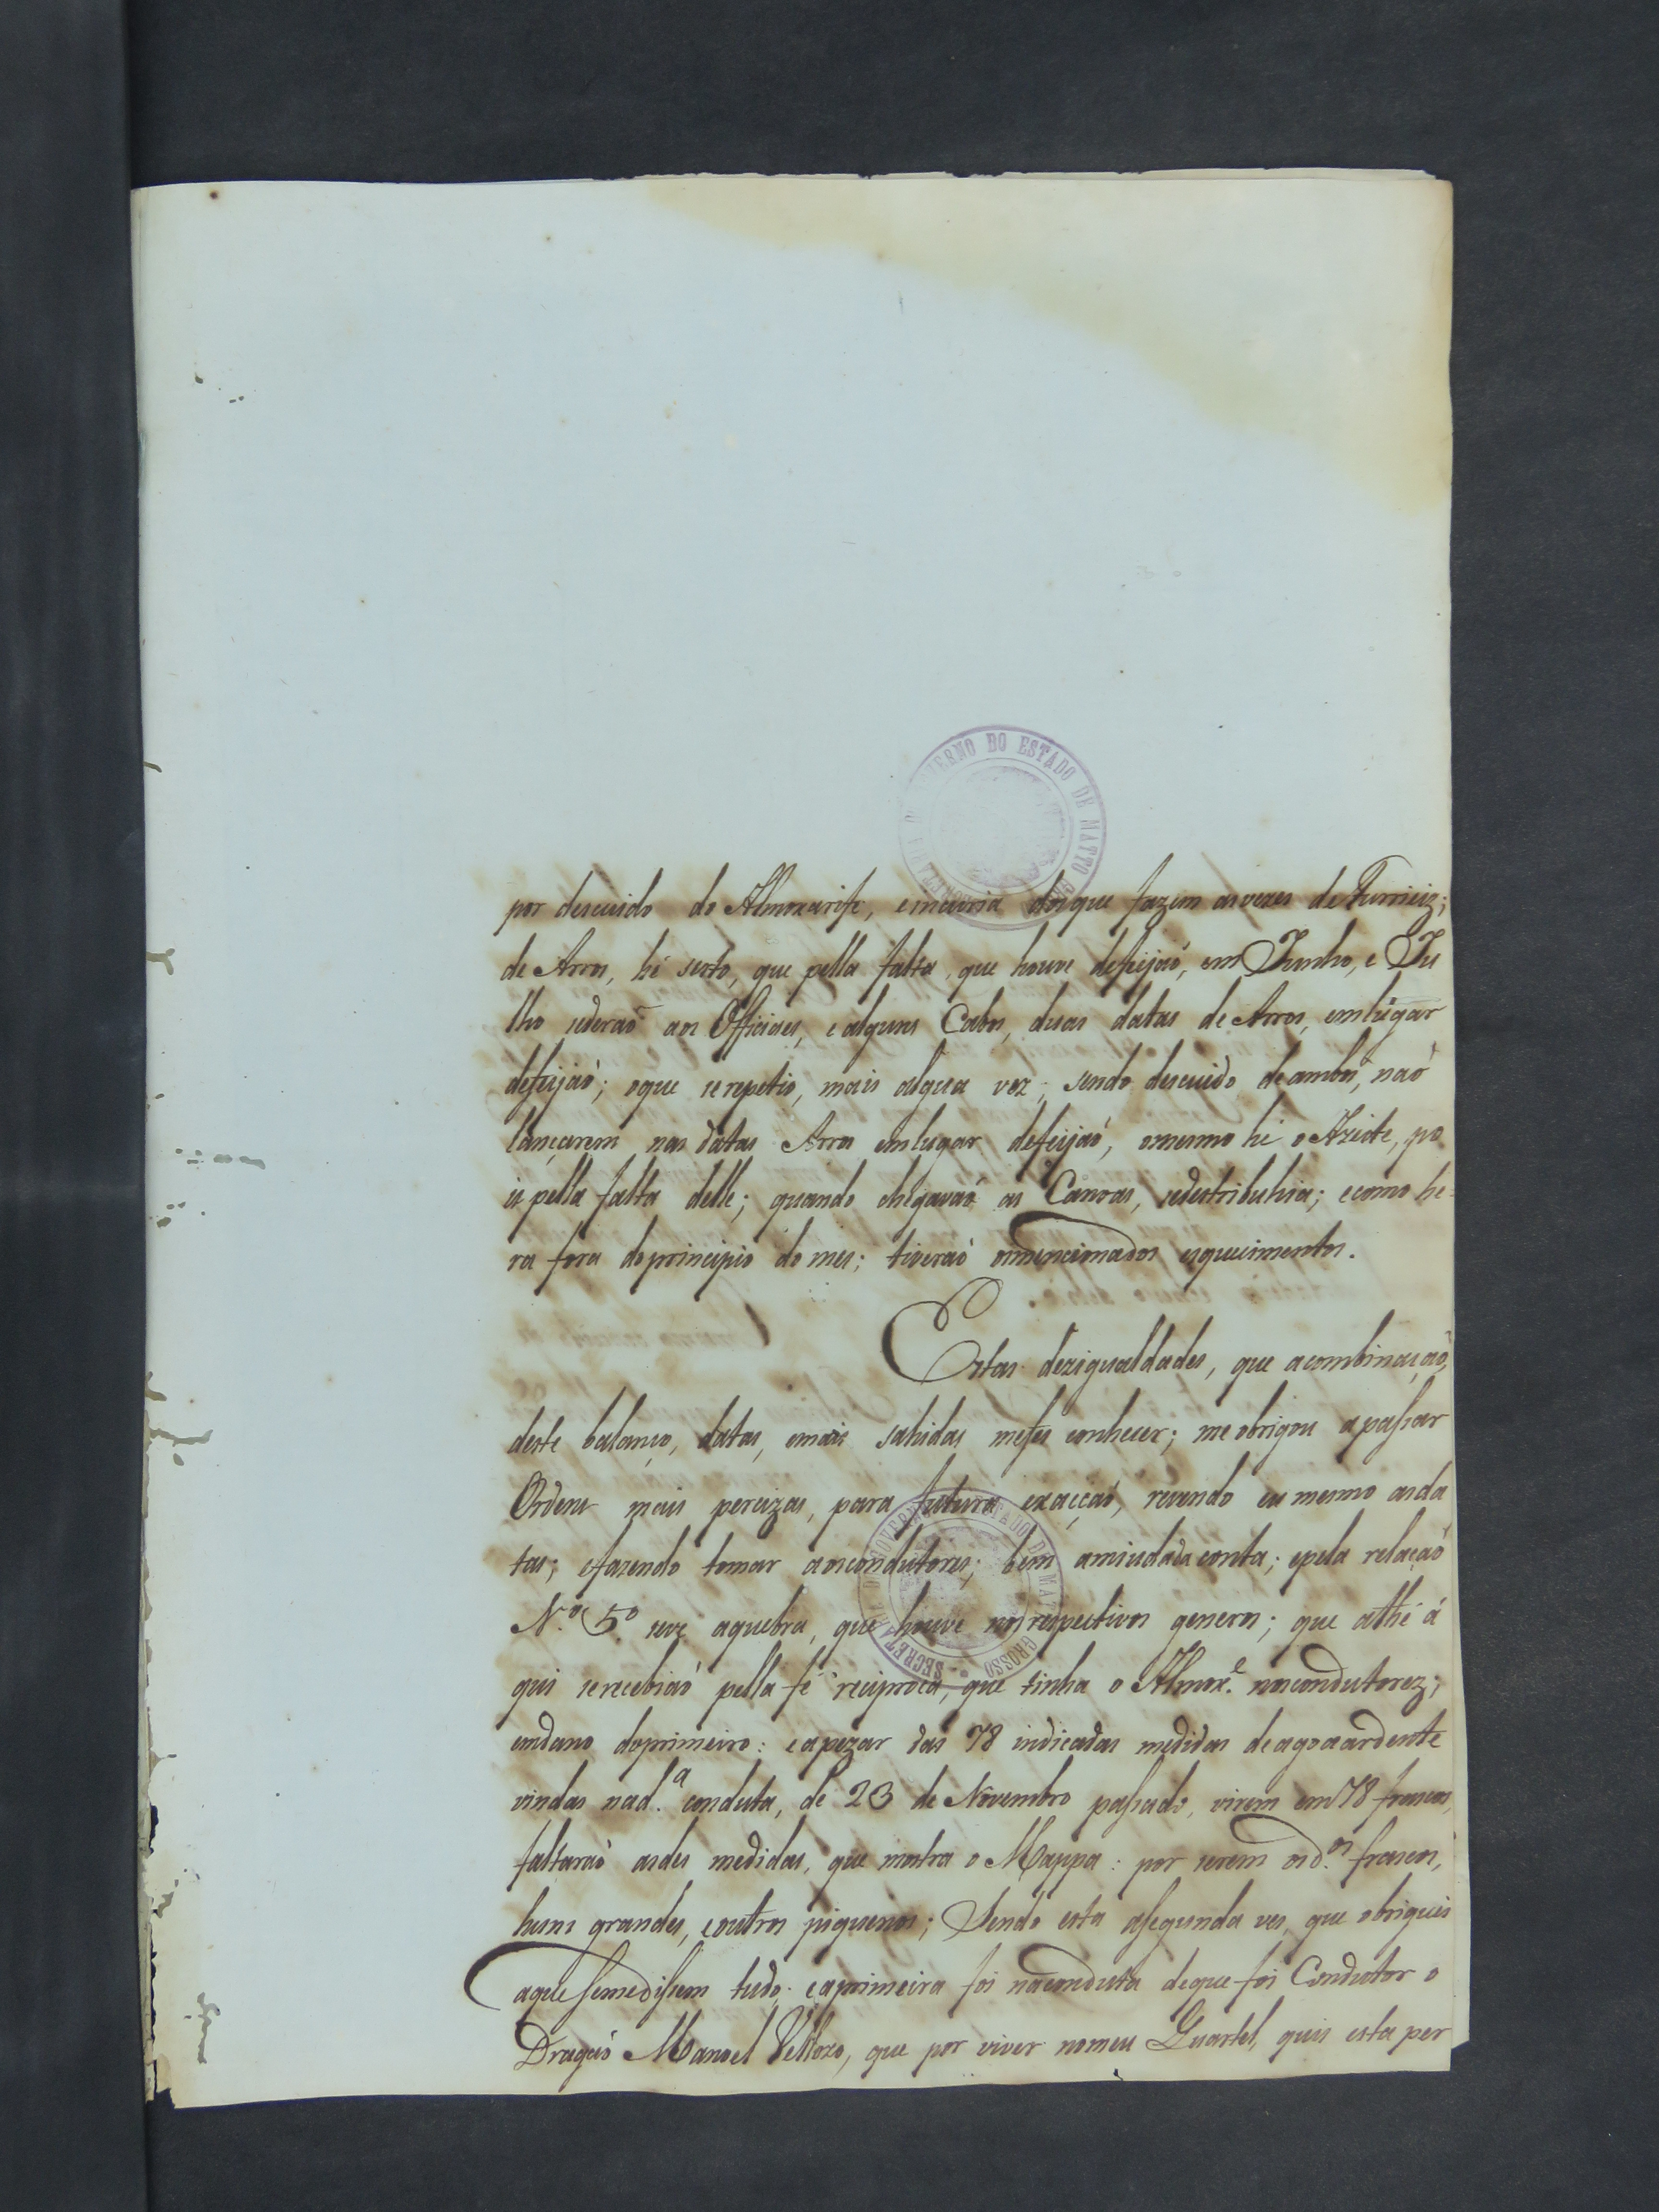 GOVERNO DO ESTADO DE MATTO
por descuido do Almoxarife, eincuria dosque fazem asvezes de Furrieiz;
de Arros, hé serto, que pella falta, que houve defeijaó, em Junho, e Ju
lho sederaõ aos Officiaes, ealguns Cabos, duas datas de Arros, emlugar
defeijaò; oque serepetio, mais algua vez; sendo descuido, deambos, naó
lançarem nas datas Arros emlugar defeijaó, omesmo hé o Azeite, po
is pella falta delle; quando chegavaó as Canoas, sedestribuhia; ecomo he
ra fora doprincipio do mes; tiveraò osmencionados esquecimentos.
Estas dezigualdades, que acombinaçaõ,
deste balanço, datas, emais sahidas mefes conhecer; me obrigou apassar
Ordens mais percizas, para futura exacçaó, revendo eu mesmo asda
tas; efazendo tomar aoscondutores; bem amiudada conta; epela relaçaõ
N.º 5º seve aquebra, que houve nosrespectivos generos; que athé á
qui serecebiaò pella fé reciproca, que tinha o Almox.e noscondutorez;
emdano doprimeiro: eapezar das 78 indicadas medidas deagoaardente
vindas nad.a conduta, de 23 de Novembro passado, virem em 78 frascos,
faltaraò asdes medidas, que mostra o Mappa: por serem osd.os frascos,
huns grandes, eoutros piquenos; Sendo esta asegunda ves, que obriguei
aque semedissem tudo; eaprimeira foi naconduta deque foi Condutor o
Dragaó Manoel Vellozo, que por viver nomeu Quartel, quis esta per
SECRETARIA DO GOVERNO DO ESTADO DE MATTO GROSSO